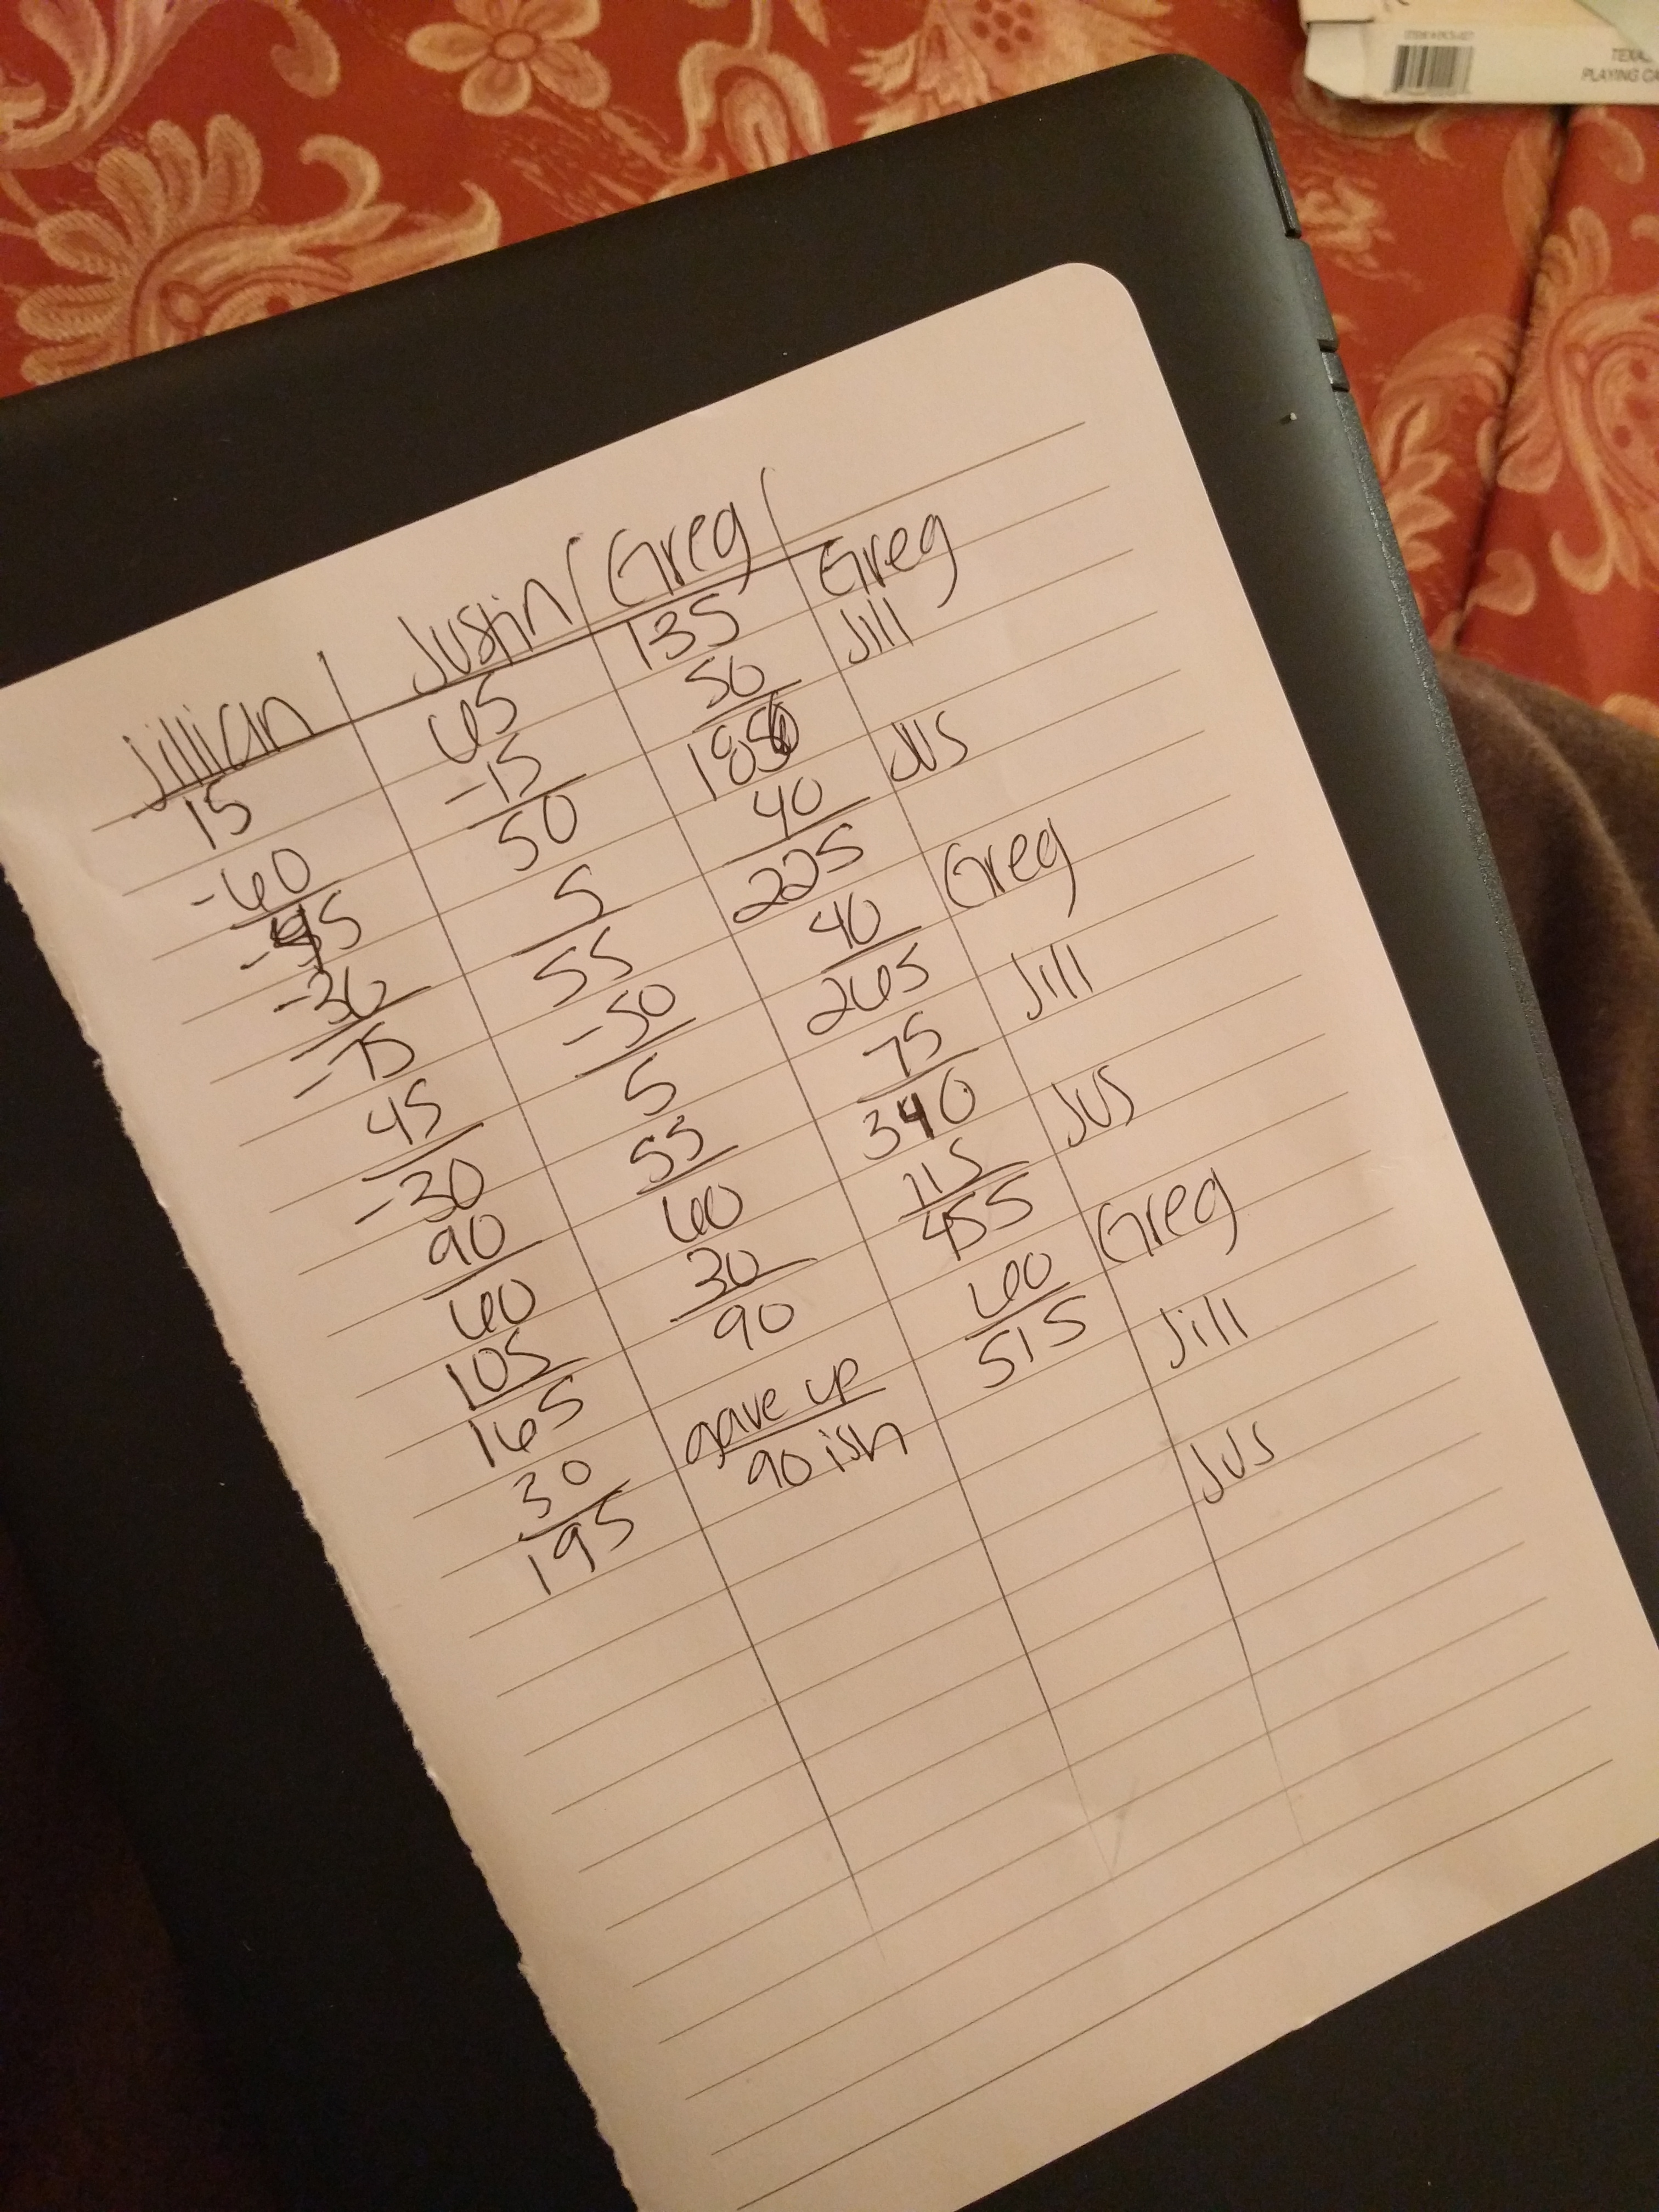 TEXA
PLAYING CA
Jillian Justin Greg
15
-60
-45
-30
-75
45
-30
90
60
105
165
30
195
65
-15
50
5
55
-50
5
55
60
30
90
gave up
90 ish
135
50
185
40
225
40
265
75
340
115
455
60
515
Greg
Jill
Jus
Greg
Jill
Jus
Greg
Jill
Jus